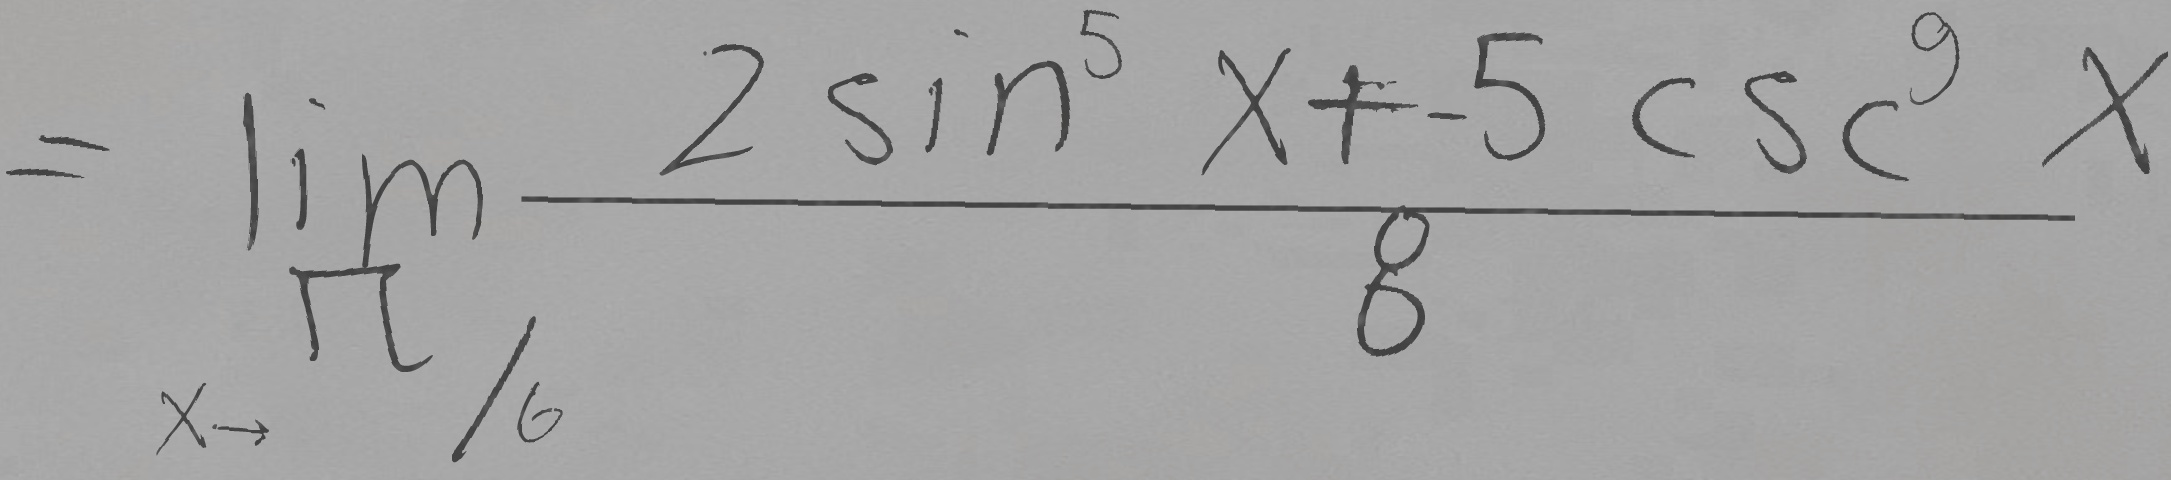 = lim_{x→π/6} \frac{2 sin^5 x + -5 csc^9 x}{8}